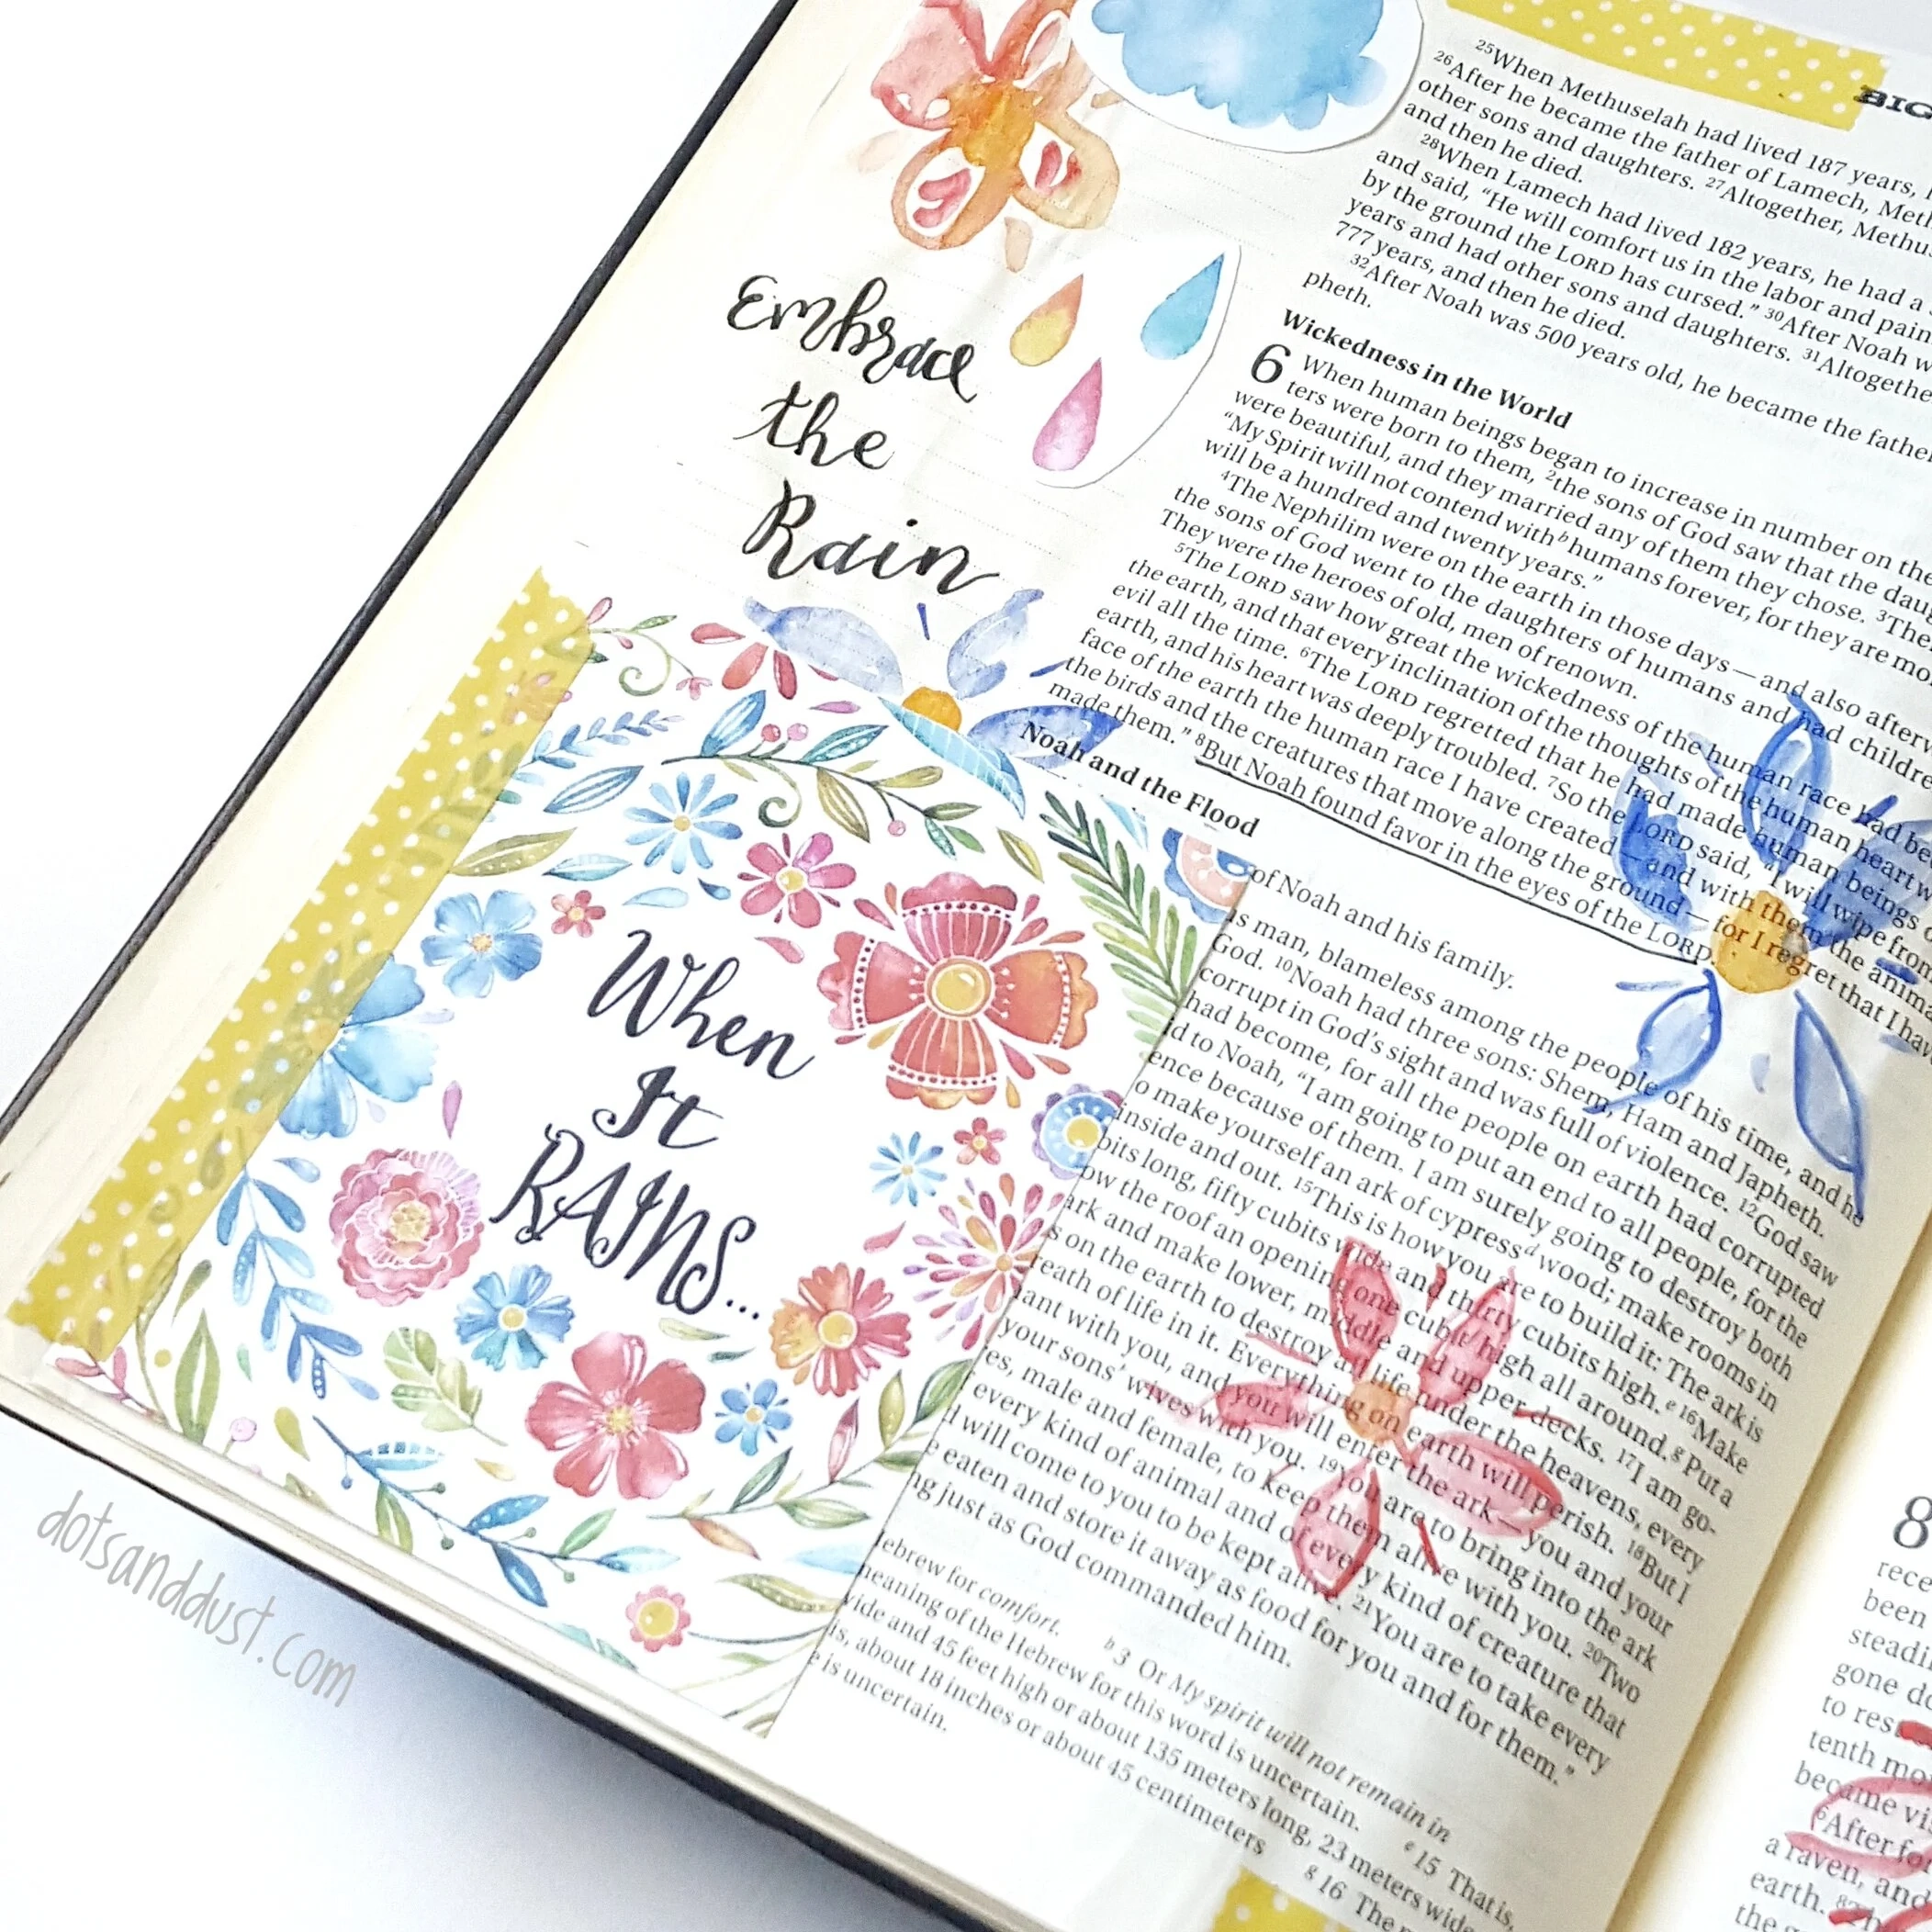 BIG
25When Methuselah had lived 187 years,
26After he became the father of Lamech, Meth
other sons and daughters. 27Altogether, Methu
and then he died.
28When Lamech had lived 182 years, he had a
and said, "He will comfort us in the labor and pain
by the ground the LORD has cursed." 30After Noah w
years and had other sons and daughters. 31Altogethe
777 years, and then he died.
32After Noah was 500 years old, he became the father
pheth.
Wickedness in the World
6 When human beings began to increase in number on the
ters were born to them, 2the sons of God saw that the dau
were beautiful, and they married any of them they chose. 3The
"My Spirit will not contend with b humans forever, for they are mo
will be a hundred and twenty years."
4The Nephilim were on the earth in those days—and also afterw
the sons of God went to the daughters of humans and had childre
They were the heroes of old, men of renown.
5The LORD saw how great the wickedness of the human race had be
the earth, and that every inclination of the thoughts of the human heart w
evil all the time. 6The LORD regretted that he had made human beings o
earth, and his heart was deeply troubled. 7So the LORD said, "I will wipe from
face of the earth the human race I have created—and with them the anima
the birds and the creatures that move along the ground—for I regret that I hav
made them." 8But Noah found favor in the eyes of the LORD.
Noah and the Flood
of Noah and his family.
is man, blameless among the people of his time, and he
God. 10Noah had three sons: Shem, Ham and Japheth.
corrupt in God's sight and was full of violence. 12God saw
had become, for all the people on earth had corrupted
id to Noah, "I am going to put an end to all people, for the
ence because of them. I am surely going to destroy both
o make yourself an ark of cypress d wood; make rooms in
inside and out. 15This is how you are to build it: The ark is
bits long, fifty cubits wide and thirty cubits high. e 16Make
ow the roof an opening one cubit high all around. g Put a
ark and make lower, middle and upper decks. 17I am go-
s on the earth to destroy all life under the heavens, every
reath of life in it. Everything on earth will perish. 18But I
ant with you, and you will enter the ark—you and your
your sons' wives with you. 19You are to bring into the ark
es, male and female, to keep them alive with you. 20Two
every kind of animal and of every kind of creature that
d will come to you to be kept alive. 21You are to take every
e eaten and store it away as food for you and for them."
ng just as God commanded him.
ebrew for comfort. b 3 Or My spirit will not remain in
meaning of the Hebrew for this word is uncertain. e 15 That is,
vide and 45 feet high or about 135 meters long, 23 meters wide
is, about 18 inches or about 45 centimeters g 16 The
e is uncertain.
Embrace
the
Rain
When
It
RAINS...
dotsanddust.com
8
rece
been
steadi
gone do
to res
tenth mo
became vis
6After for
a raven, and
earth.
the